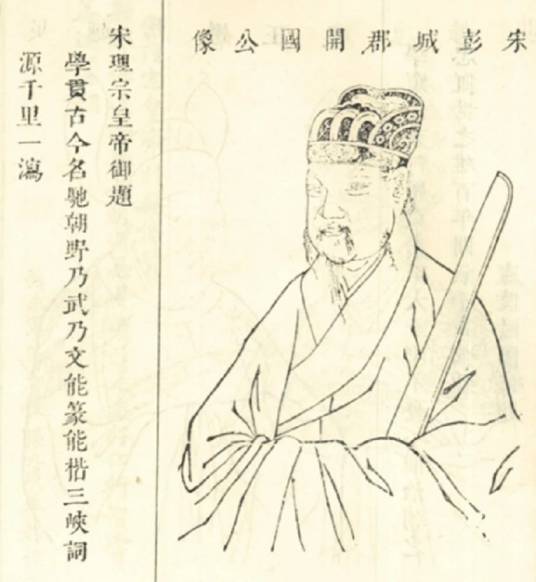 宋彭城郡開國公像
宋理宗皇帝御題
學貫古今名馳朝野乃武乃文能篆能楷三峽詞
源千里一瀉